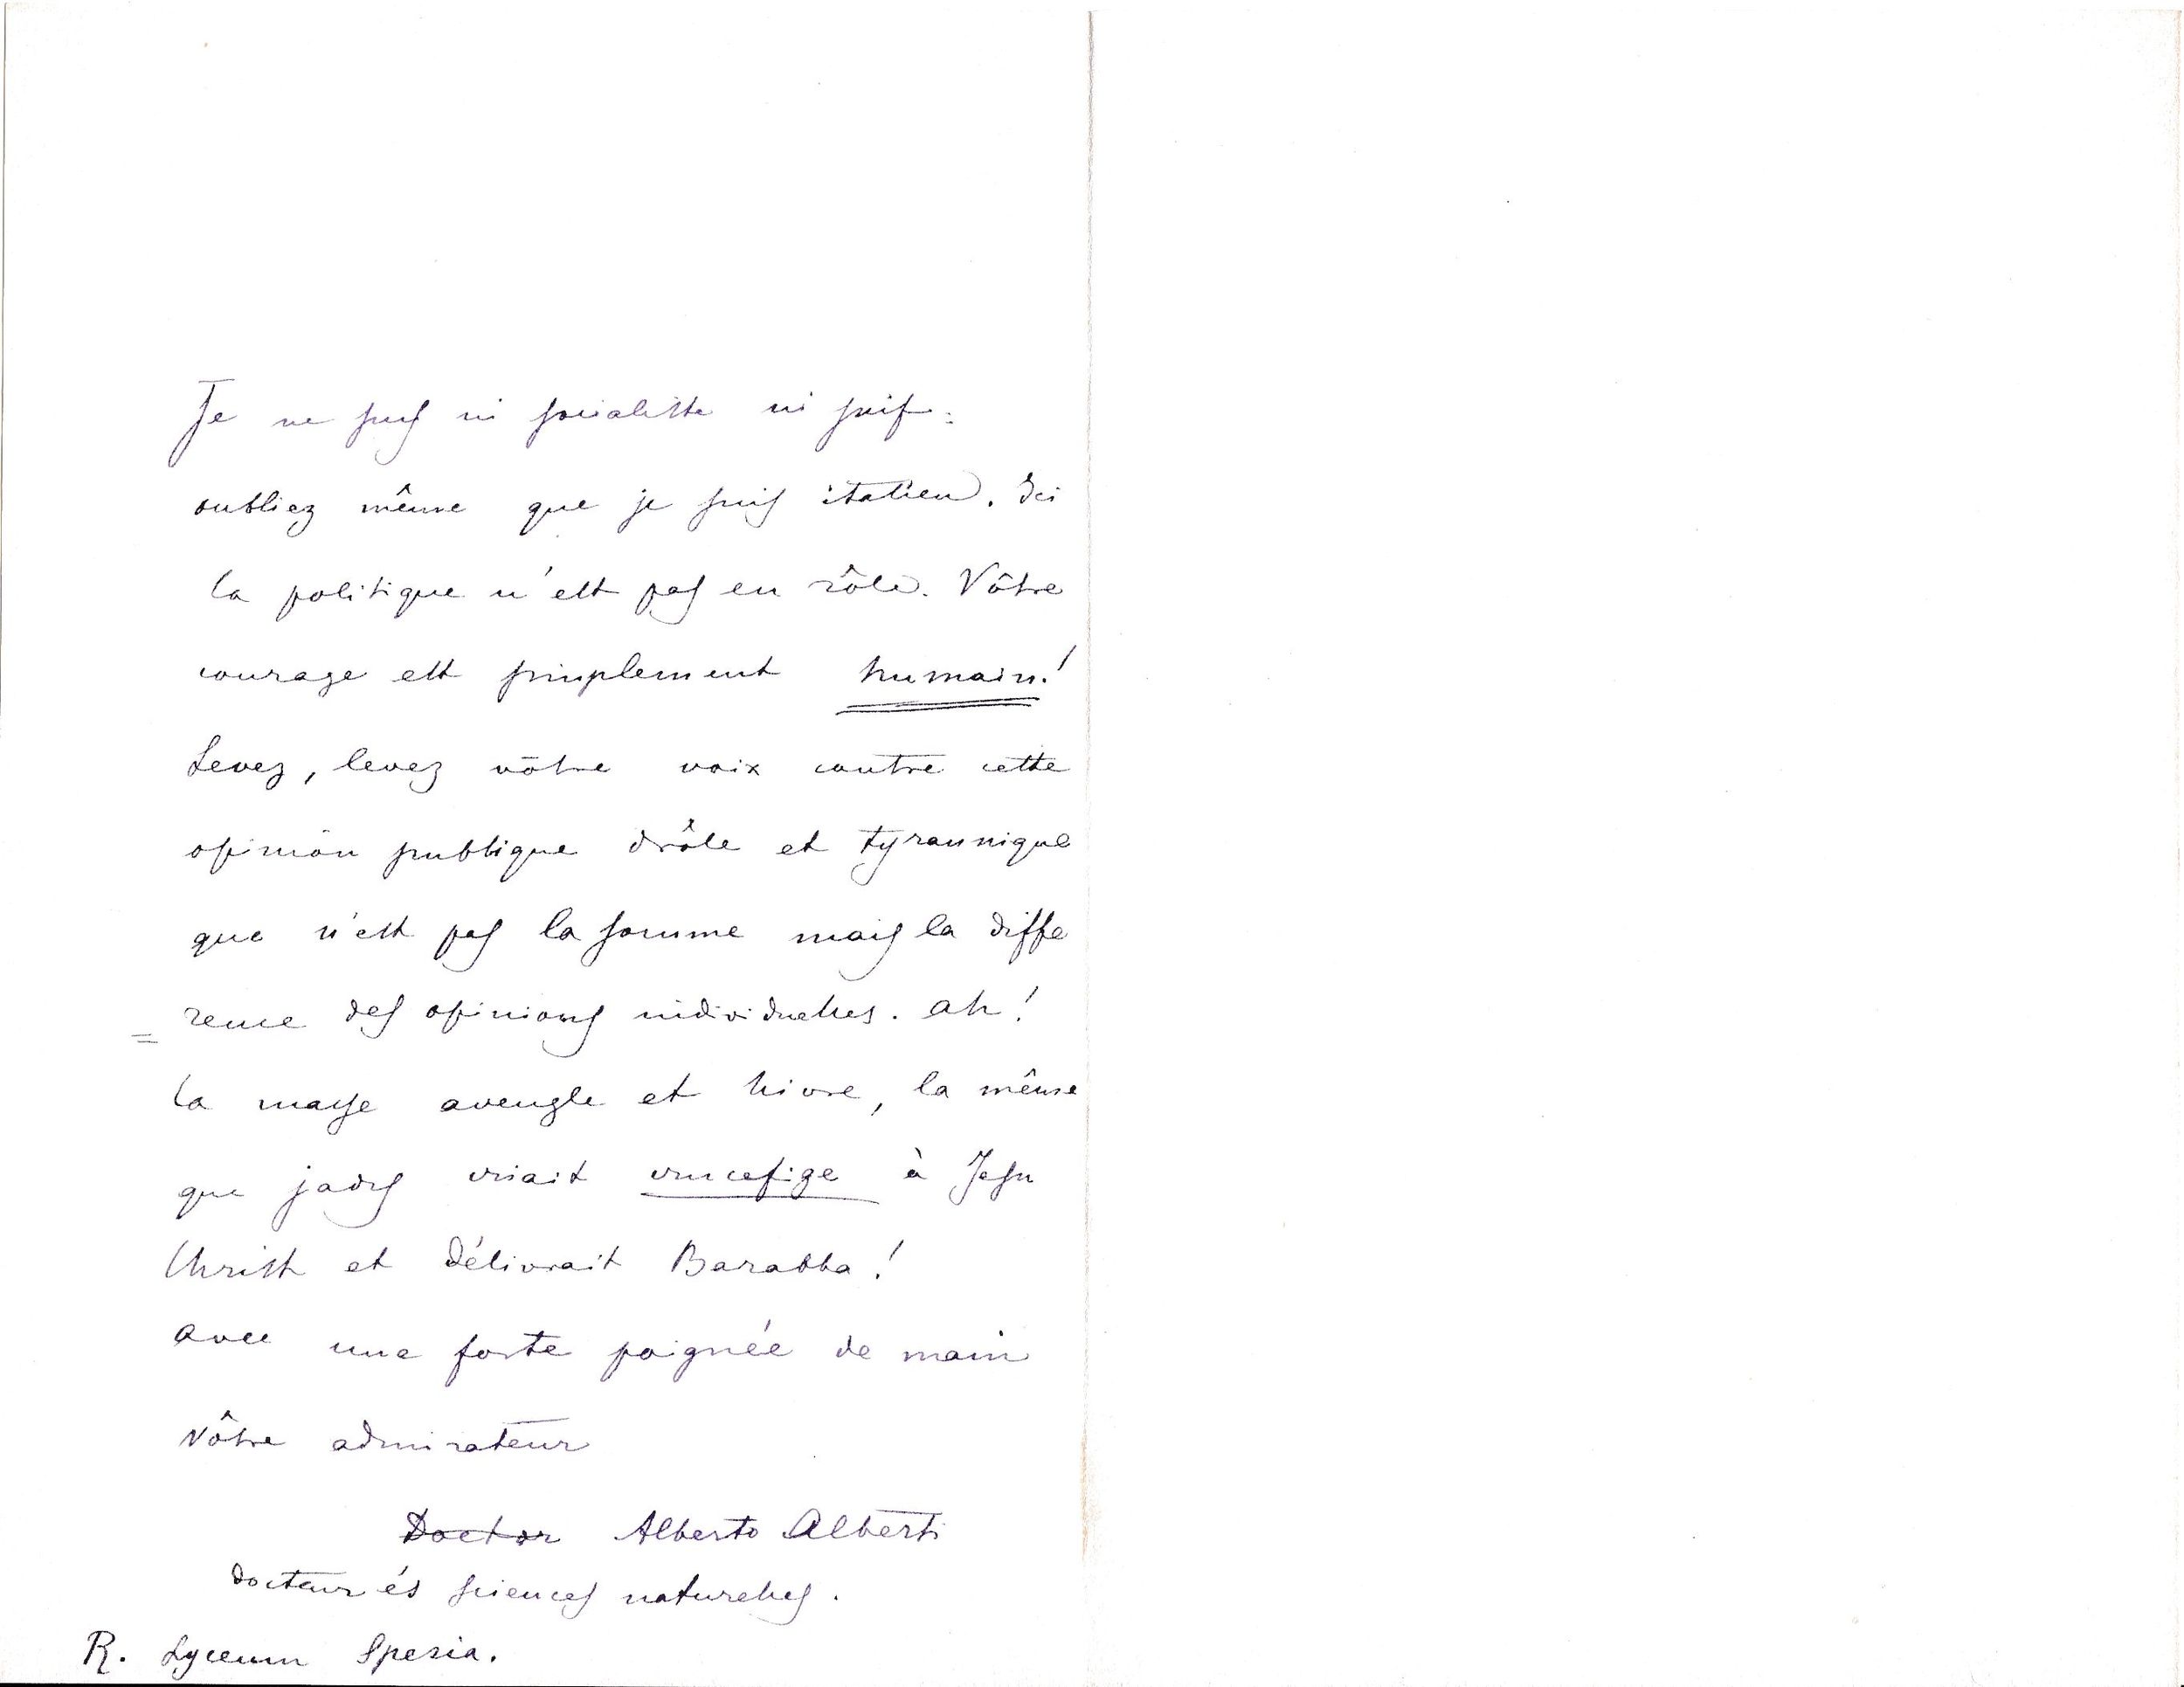 Je ne suis ni socialiste ni juif:
oubliez même que je suis italien. Ici
la politique n'est pas en rôle. Vôtre
courage est simplement humain!
Levez, levez vôtre voix contre cette
opinion publique drôle et tyrannique
que n'est pas la somme mais la diffe
=rence des opinions individuelles. Ah!
la masse aveugle et hivre, la même
que jadis criait crucefige à Jesu
Christ et délivrait Barabba!
Avec une forte poignée de main
Vôtre admirateur
Doctor Alberto Alberti
docteur és sciences naturelles.
R. Lyceum Spezia.